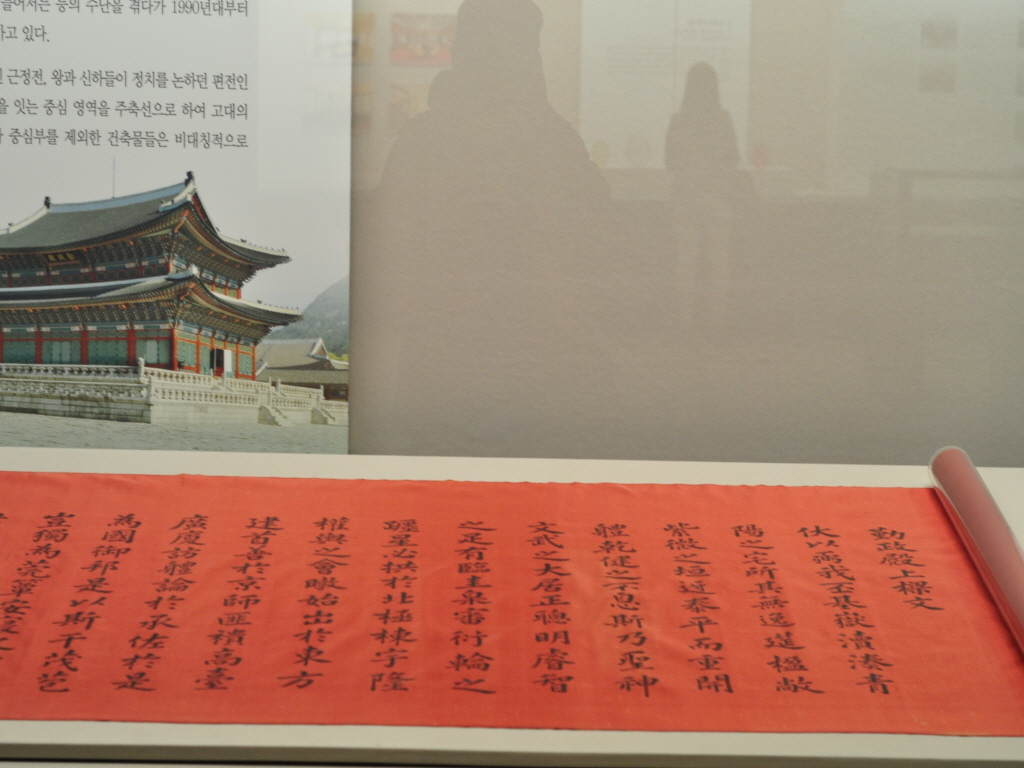 들어서는 등의 수난을 겪다가 1990년대부터
하고 있다.
근정전, 왕과 신하들이 정치를 논하던 편전인
을 잇는 중심 영역을 주축선으로 하여 고대의
중심부를 제외한 건축물들은 비대칭적으로
勤政殿上樑文
伏以弼我丕基嶽瀆湊靑
陽之宅所其無逸莛楹敞
紫微之垣迓泰平而重開
體乾健之不息斯乃聖神
文武之大居正聰明睿智
之足有臨圭臬審衍輪之
躔星必拱於北極棟宇隆
權輿之會暾始出於東方
建首善於京師匪積高臺
廣廈訪體論於承佐於是
為國御邦是以斯干茂苞
豈獨為莞簟安